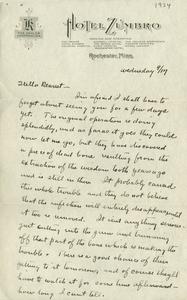 1934
HOTEL ZUMBRO
Rochester, Minn.
Wednesday
Hello Dearest —
I'm afraid I shall have to
forget about seeing you for a few days
yet. The original operation is doing
splendidly, and as far as it goes they could
now let me go, but they have discovered
a piece of dead bone resulting from the
extraction of the wisdom tooth years ago
and is still in there. It probably caused
this whole trouble and they do not believe
that the infection will entirely disappear until
it too is removed. It isn't anything serious -
just cutting into the gum and trimming
off that part of the bone which is making the
trouble. There is a good chance of their
getting to it tomorrow, and of course they'll
have to watch it for some time afterward -
how long I can't tell.